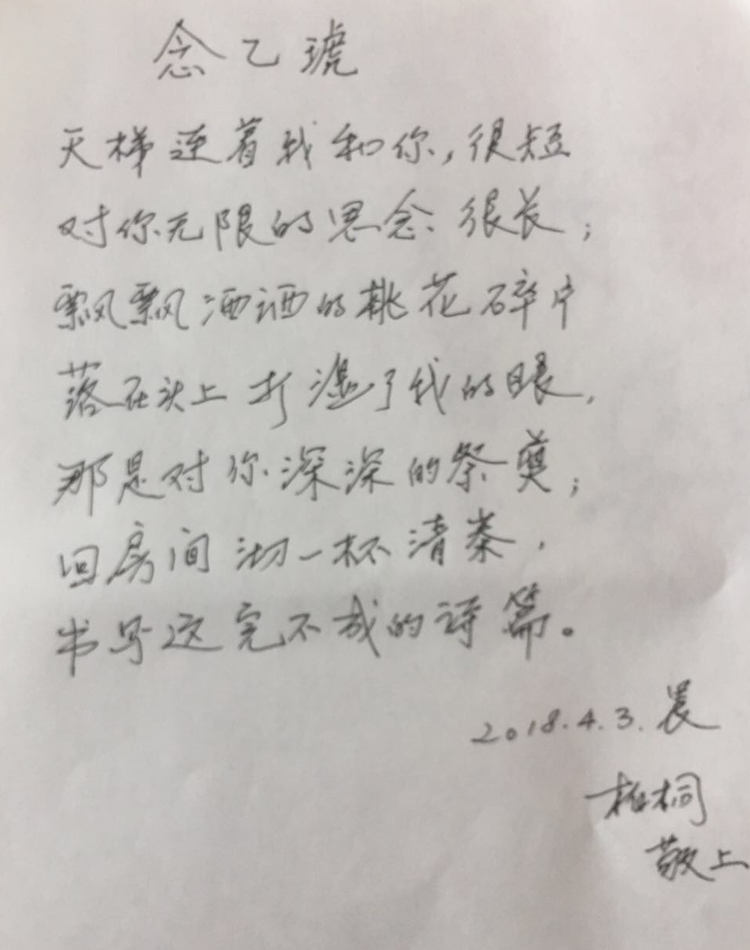 念乙琥
天梯连着我和你,很短
对你无限的思念 很长;
飘飘洒洒的桃花碎片
落在头上 打湿了我的眼,
那是对你深深的祭奠;
回房间沏一杯清茶,
书写这完不成的诗篇。
2018.4.3.晨
柏桐
敬上